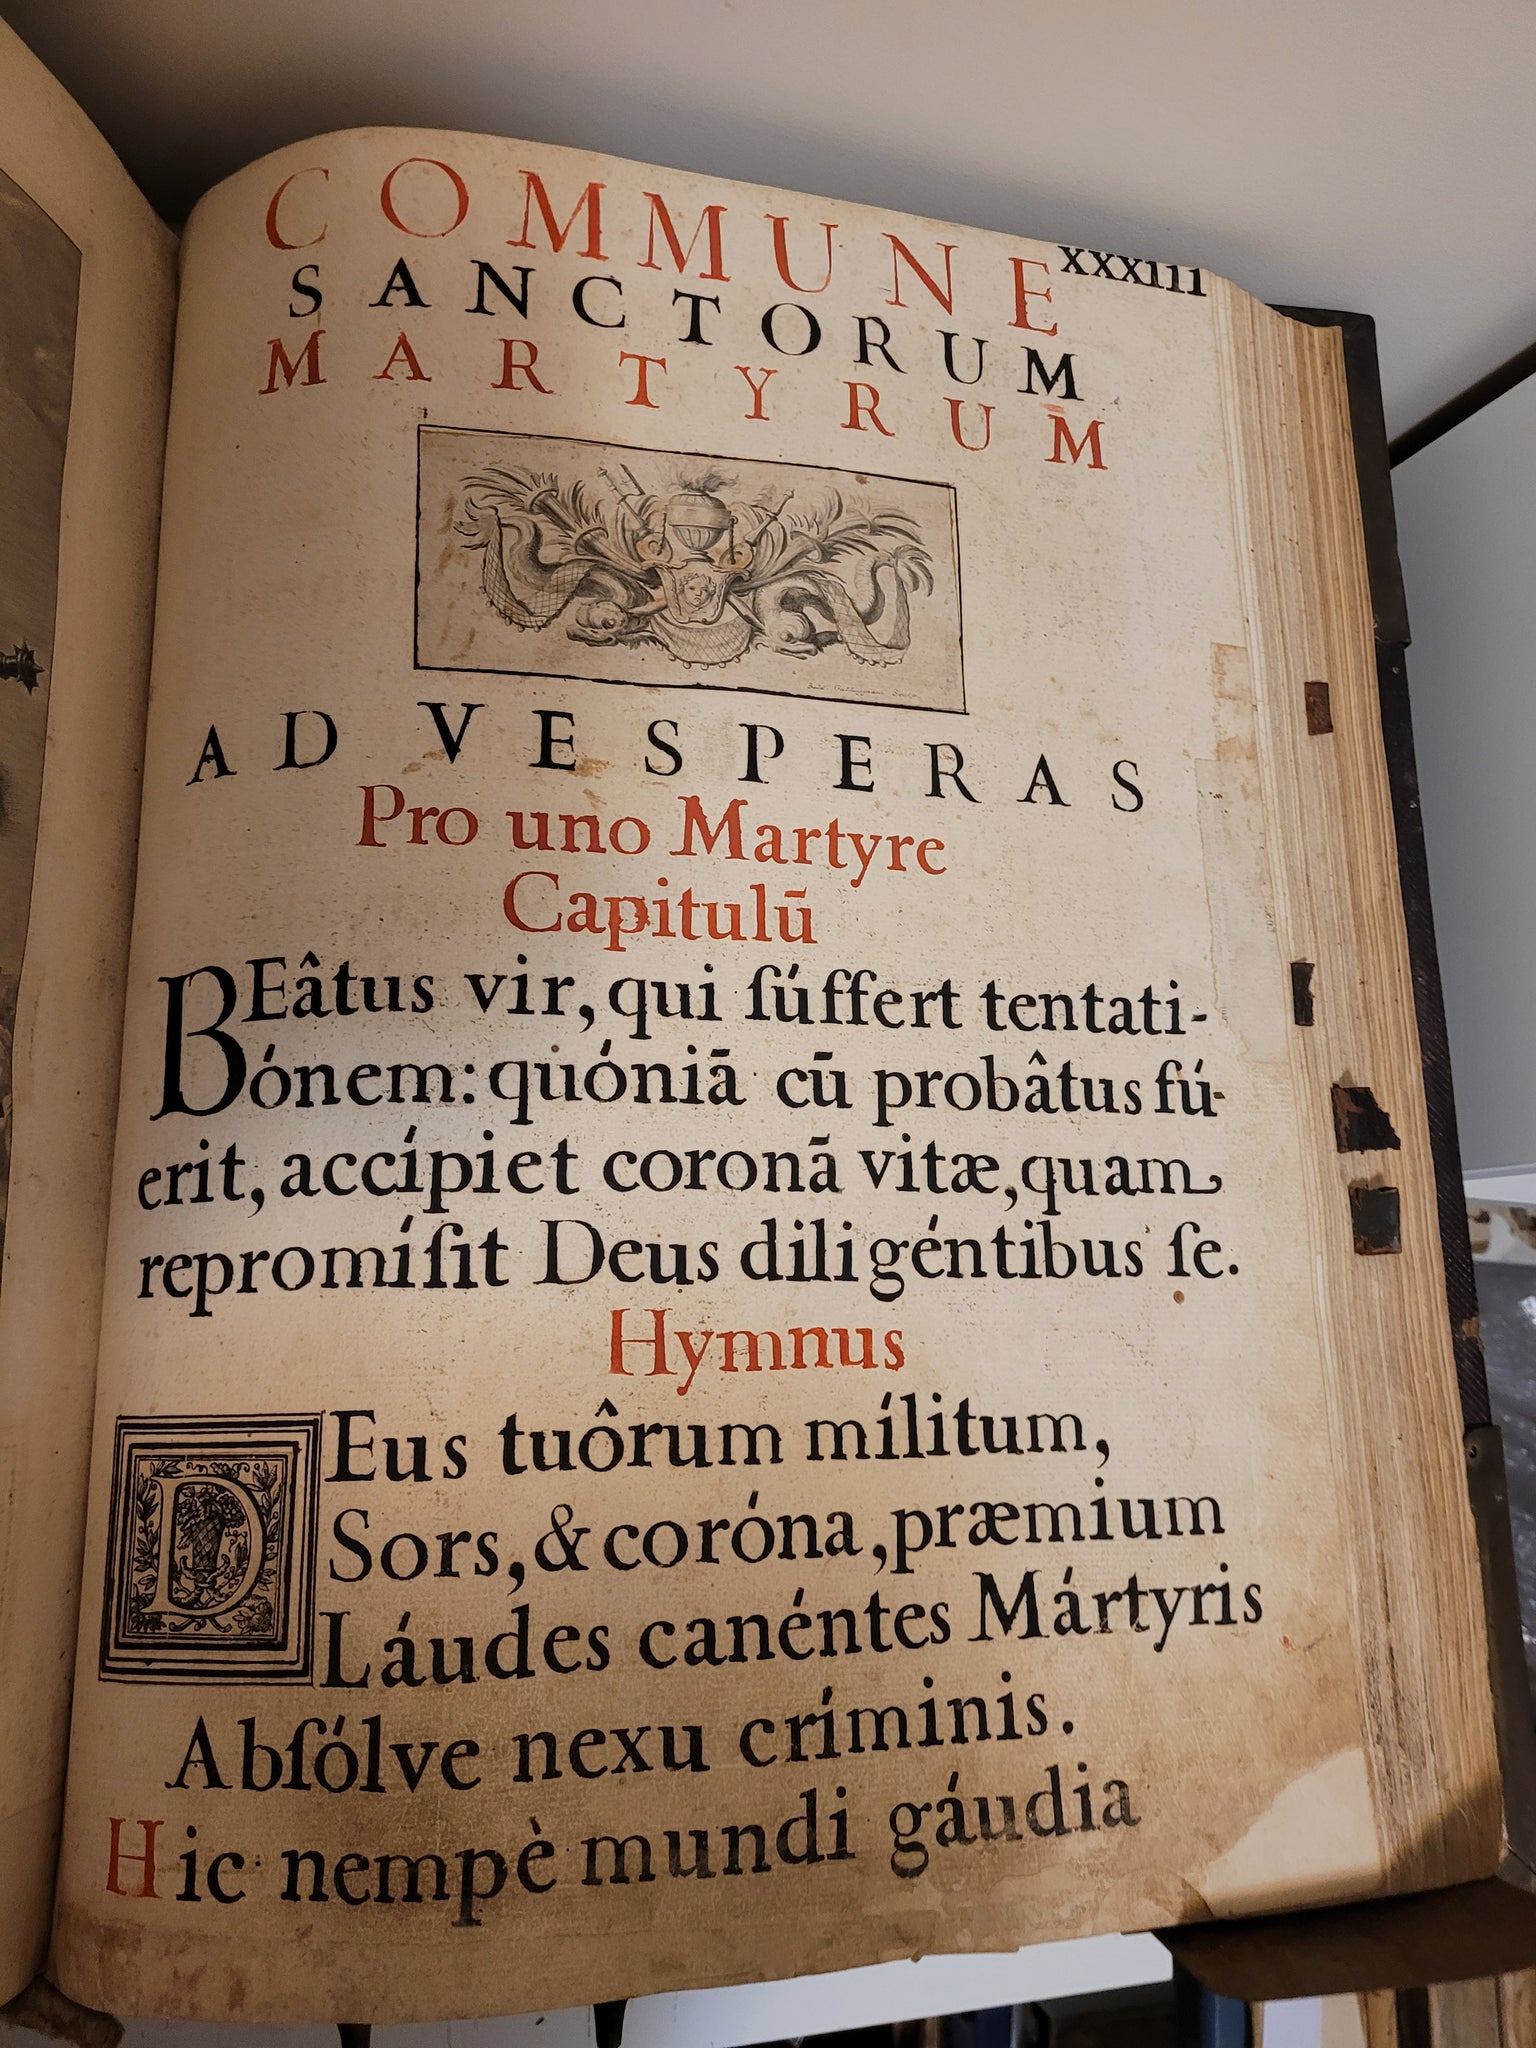 COMMUNE
XXXIII
SANCTORUM
MARTYRUM
AD VESPERAS
Pro uno Martyre
Capitulū
BEâtus vir, qui ſúffert tentati-
ónem: quóniā cū probâtus fú-
erit, accípiet coronā vitæ, quam
repromíſit Deus diligéntibus ſe.
Hymnus
DEus tuôrum mílitum,
Sors, & coróna, præmium
Láudes canéntes Mártyris
Abſólve nexu críminis.
Hic nempè mundi gáudia